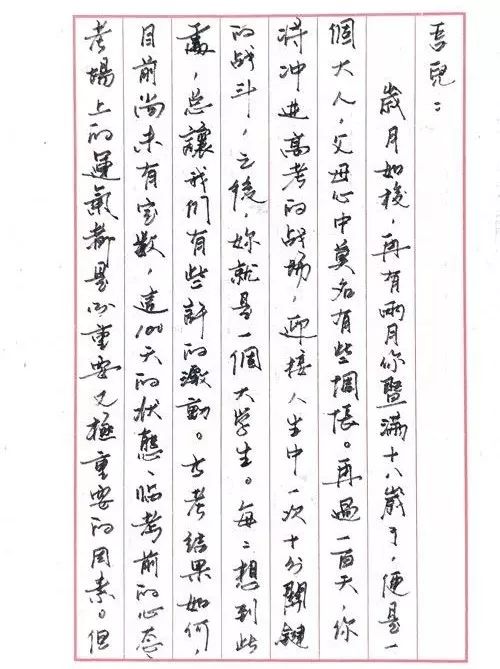 吾兒：
歲月如梭，再有兩月你暨滿十八歲了，便是一
個大人，父母心中莫名有些惆悵。再過一百天，你
将冲进高考的战場，迎接人生中一次十分關鍵
的战斗，之後，妳就是一個大学生。每々想到此
處，总讓我们有些許的激動。高考结果如何，
目前尚未有定數，這100天的状態、临考前的心态
考場上的運氣都是不重要又極重要的因素。但